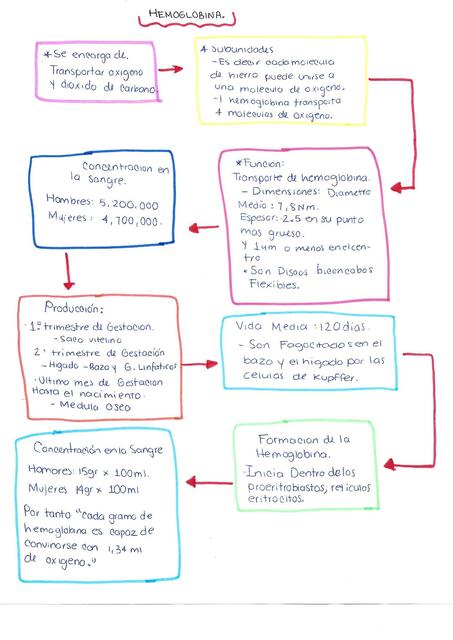 HEMOGLOBINA.
*Se encarga de.
Transportar oxigeno
y dioxido de carbono.
4 Subunidades
-Es decir cada molecula
de hierro puede unirse a
una molecula de oxigeno.
-1 hemoglobina transporta
4 moleculas de oxigeno.
*Funcion:
Transporte de hemoglobina.
- Dimensiones: Diametro
Medio: 7,8Nm.
Espesor: 2.5 en su punto
mas grueso.
y 1um o menos en el cen-
tro
* Son Discos biconcabos
Flexibles.
Concentracion en
la sangre.
Hombres: 5,200.000
Mujeres: 4,700,000.
Producción:
·1º trimestre de Gestacion.
-Saco vitelino
2º trimestre de Gestación
-Higado -Bazo y G. linfaticos
·Ultimo mes de Gestacion
Hasta el nacimiento.
- Medula Oseo
Vida Media: 120 dias.
- Son Fagocitados en el
bazo y el higado por las
celulas de Kupffer.
Formacion de la
Hemoglobina.
-Inicia Dentro de los
proeritrobiastos, reticulos
eritrocitos.
Concentración en la Sangre
Hombres: 15gr x 100ml.
Mujeres 14gr x 100ml
Por tanto "Cada gramo de
hemoglobina es capaz de
convinarse con 1,34 ml
de oxigeno."